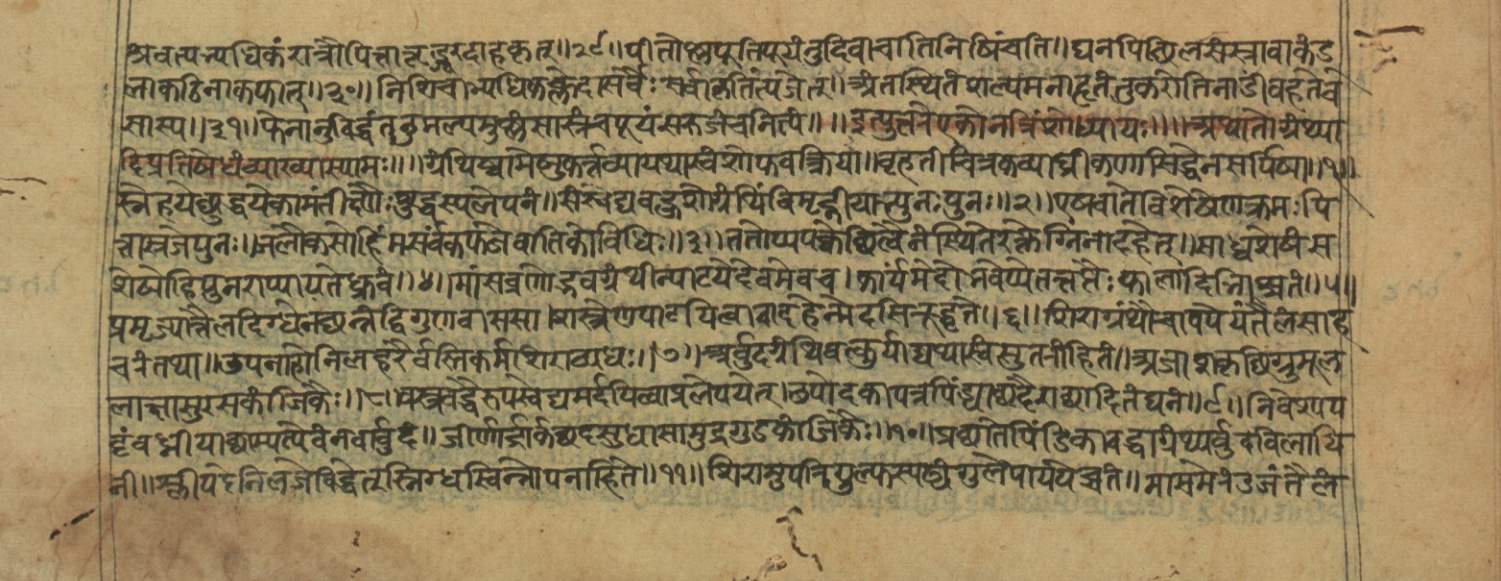 स्रवत्यभ्यधिकं रात्रौ पित्तात्तृड्ज्वरदाहकृत्॥२९॥ पीतोष्णपूतिपूयं तु दिवा चातिनिषिंचति॥ घनपिच्छिलसंस्रावा कंडू
ला कठिना कफात्॥३०॥ निशि चाभ्यधिकक्लेदा सर्वैः सर्वाकृतिं त्यजेत्॥ अंतस्थितं शल्यमनाहृतं तु करोति नाडीं वहते च
सास्य॥३१॥ फेनानुविद्धं तनुमल्पमुष्णं सास्रं च पूयं सरुजं च नित्यं॥॥ इत्युत्तरे एकोनत्रिंशोध्यायः॥॥ अथातो ग्रंथ्या
दिप्रतिषेधं व्याख्यास्यामः॥॥ ग्रंथिष्वामेषु कर्त्तव्या यथास्वं शोफवक्रिया॥ बृहतीचित्रकव्याघ्रीकणासिद्धेन सर्पिषा॥१॥
स्नेहयेच्छुद्धयेकामं तीक्ष्णैः शुद्धस्य लेपनं॥ संस्वेद्य बहुशो ग्रंथिं विमृद्नीयात्पुनःपुनः॥२॥ एष वाते विशेषेण क्रमः पि
त्तास्रजे पुनः॥ जलौकसो हिमं सर्वं कफजे वातिको विधिः॥३॥ तताप्यपक्वंछित्वैनं स्थिते रक्तेग्निना दहेत्॥ साध्वशेषं स
शेषो हि पुनराप्यायते ध्रुवं॥४॥ मांसव्रणोद्भवग्रंथीन्पाटयेदेवमेव च। कार्यं मेदोभवेप्येतत्तप्तैः फालादिभिश्च तं॥५॥
प्रमृज्यात्तैलदिग्धेनछन्नं द्विगुणवाससा। शस्त्रेण पाटयित्वा वा दहेन्मेदसि सूद्धृते॥६॥ शिराग्रंथौ नवे पेयं तैलं साह
चरं तथा॥ उपनाहोनिलहरैर्वस्तिकर्म शिराव्यधः॥७॥ अर्बुदे ग्रंथिवत्कुर्याद्यथास्वं सुतरां हितं॥ अजाशकृच्छिग्रुमूल
लाक्षासुरसकांजिकैः॥८॥ वस्त्रबद्धैरुपस्वेद्य मर्दयित्वा प्रलेपयेत्। उपोदकापत्रपिंड्या छदैराच्छादितं घनं॥९॥ निवेश्य प
ट्टं बध्नीयाच्छाम्यत्येवं नवार्बुदं॥ जीर्णार्द्रार्कच्छदसुधासामुद्रगुडकांजिकैः॥१०॥ प्रच्छाते पिंडिका बद्धा ग्रंथ्यर्बुदविलायि
नी॥ श्लीपदेनिलजे विद्धेत् स्निग्धस्विन्नोपनाहिते॥११॥ शिरामुपरि गुल्फस्य द्व्यंगुले पाययेच्च तं॥ मासमेरंडजं तैलं